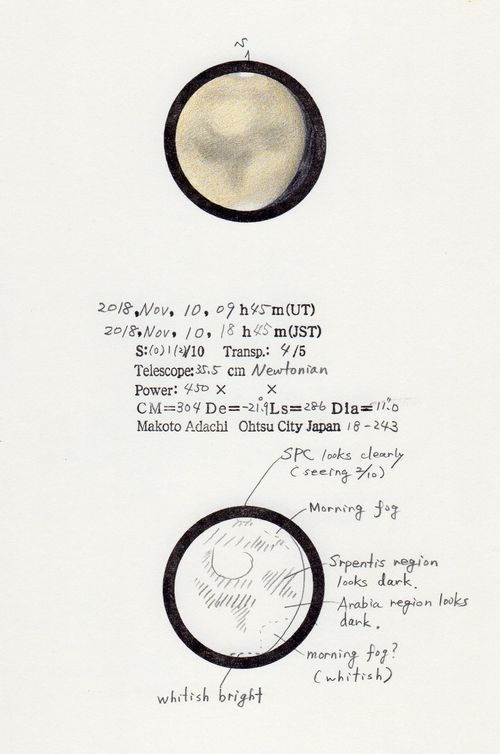 S
2018, Nov, 10, 09 h45m(UT)
2018, Nov, 10, 18 h45m(JST)
S:(0)1(2)/10 Transp.: 4/5
Telescope: 35.5 cm Newtonian
Power: 450 × ×
CM=304 De=-21.9° Ls=286 Dia=11".0
Makoto Adachi Ohtsu City Japan 18-243
SPC looks clearly
(seeing 2/10)
Morning fog
Srpentis region
looks dark.
Arabia region looks
dark.
morning fog?
(whitish)
whitish bright